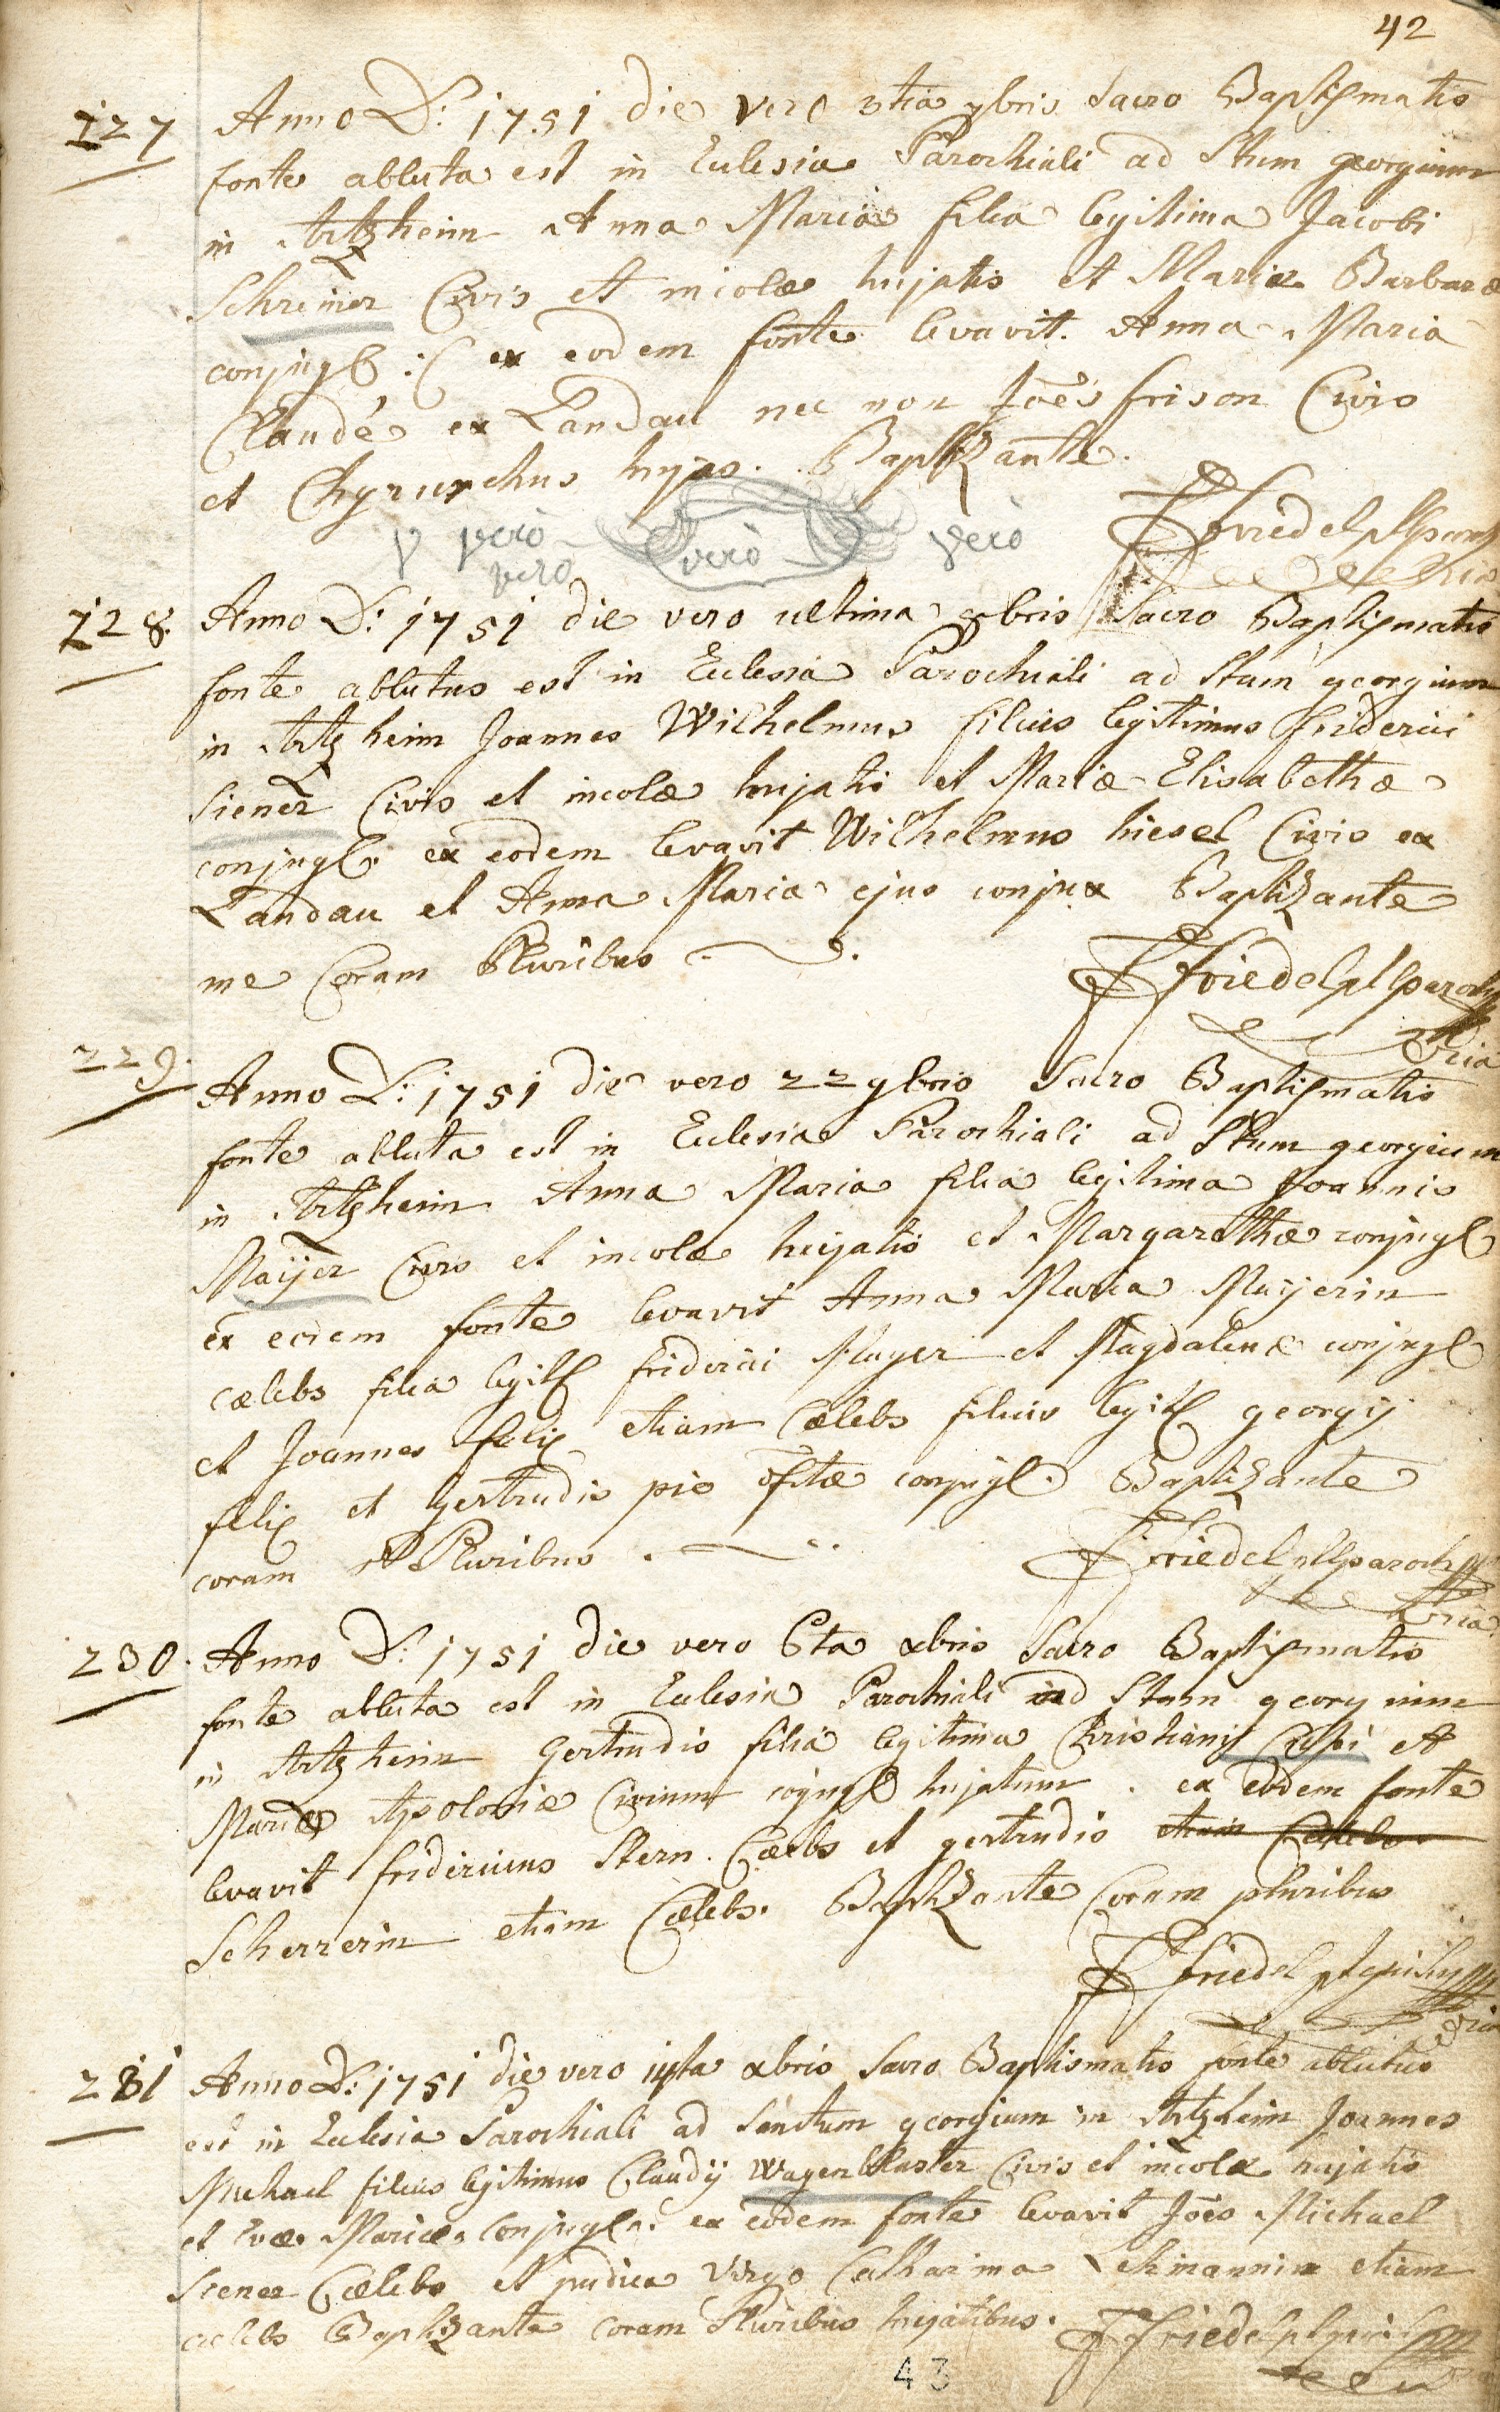 42
227 Anno D: 1751 die vero 3tia 9bris Sacro Baptismatis
fonte abluta est in Eclesia Parochiali ad Stum georgium
in Artzheim Anna Maria filia legitima Jacobi
Schreiner Civis et incolæ hujatis et Mariæ Barbaræ
conjugl :( ex eodem fonte levavit Anna Maria
Claudé ex Landau nec non Joês frison Civis
et Chyrurchus hujas. Baptizante.
Friedel
v vero vero vero
vero
228. Anno D: 1751 die vero ultima 8bris Sacro Baptismatis
fonte ablutus est in Eclesia Parochiali ad Stum georgium
in Artzheim Joannes Wilhelmus filius legitimus friderici
Siener Civis et incolæ hujatis et Mariæ Elisabethæ
conjugl. ex eodem levavit Wilhelmus hiesel Civis ex
Landau et Anna Maria ejus conjux Baptizante
me Coram Pluribus
Friedel
229. Anno D: 1751 die vero 22 9bris Sacro Baptismatis
fonte abluta est in Eclesia Parochiali ad Stum georgium
in Artzheim Anna Maria filia legitima Joannis
Maÿer Civis et incolæ hujatis et Margarethæ conjugl
ex eodem fonte levavit Anna Maria Maÿerin
cælebs filia legitl friderici Mayer et Magdalenæ conjugl
et Joannes felix etiam Cælebs filius legitl georgij
felix et gertrudis pie conjugl. Baptizante
coram Pluribus
Friedel
230. Anno D: 1751 die vero 6ta xbris Sacro Baptismatis
fonte abluta est in Eclesia Parochiali ad Stum georgium
in Artzheim Gertrudis filia legitima Christiani et
Mariæ Apoloniæ Civium cojugl hujatum. ex eodem fonte
levavit fridericus Stern Cælebs et gertrudis etiam Cælebs
Scherrerin etiam Cælebs. Baptizante Coram pluribus
Friedel
231 Anno D: 1751 die vero xbris Sacro Baptismatis fonte ablutus
est in Eclesia Parochiali ad Sanctum georgium in Artzheim Joannes
Michael filius legitimus Claudij Wagenblaster Civis et incolæ hujatis
et Evæ Mariæ Conjugl. ex eodem fonte levavit Joês Michael
Siener Cælebs et pudica Virgo Catharina Lehmannin etiam
cælebs Baptizante coram Pluribus hujatibus.
Friedel
43